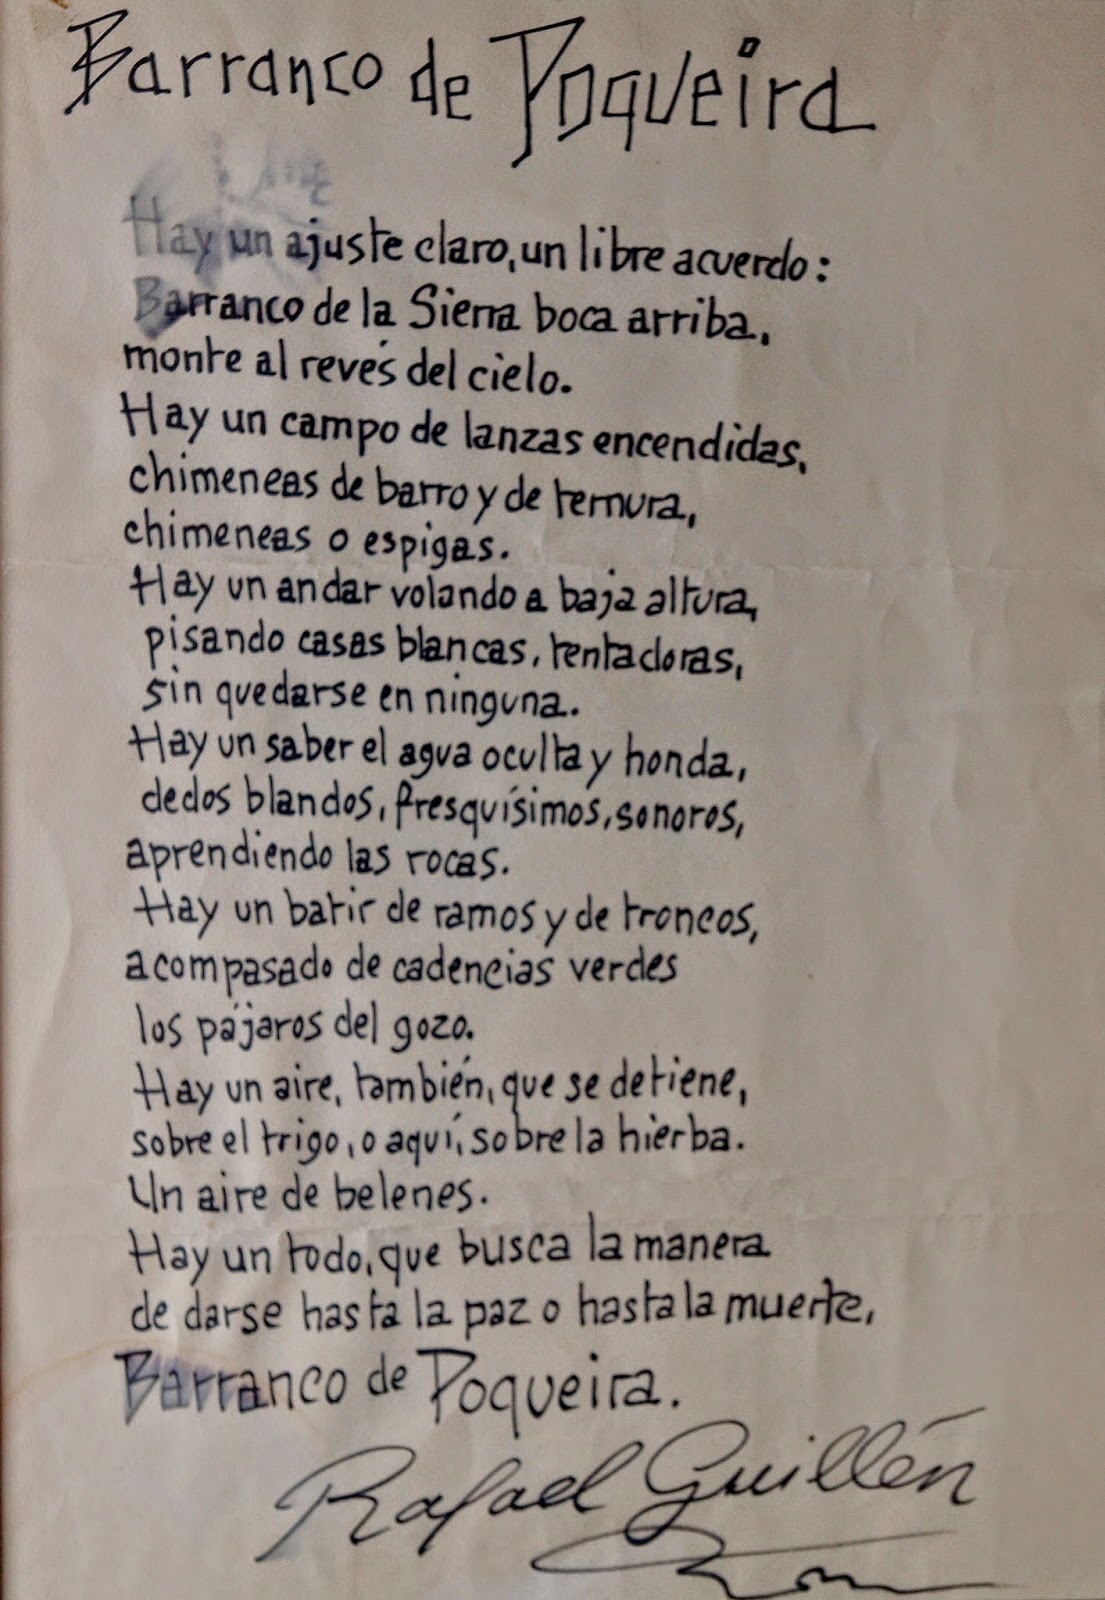 Barranco de Poqueira
Hay un ajuste claro, un libre acuerdo:
Barranco de la Sierra boca arriba,
monte al revés del cielo.
Hay un campo de lanzas encendidas,
chimeneas de barro y de ternura,
chimeneas o espigas.
Hay un andar volando a baja altura,
pisando casas blancas, tentadoras,
sin quedarse en ninguna.
Hay un saber el agua oculta y honda,
dedos blandos, fresquísimos, sonoros,
aprendiendo las rocas.
Hay un batir de ramos y de troncos,
acompasado de cadencias verdes
los pájaros del gozo.
Hay un aire, también, que se detiene,
sobre el trigo, o aquí, sobre la hierba.
Un aire de belenes.
Hay un todo, que busca la manera
de darse hasta la paz o hasta la muerte,
Barranco de Poqueira.
Rafael Guillén